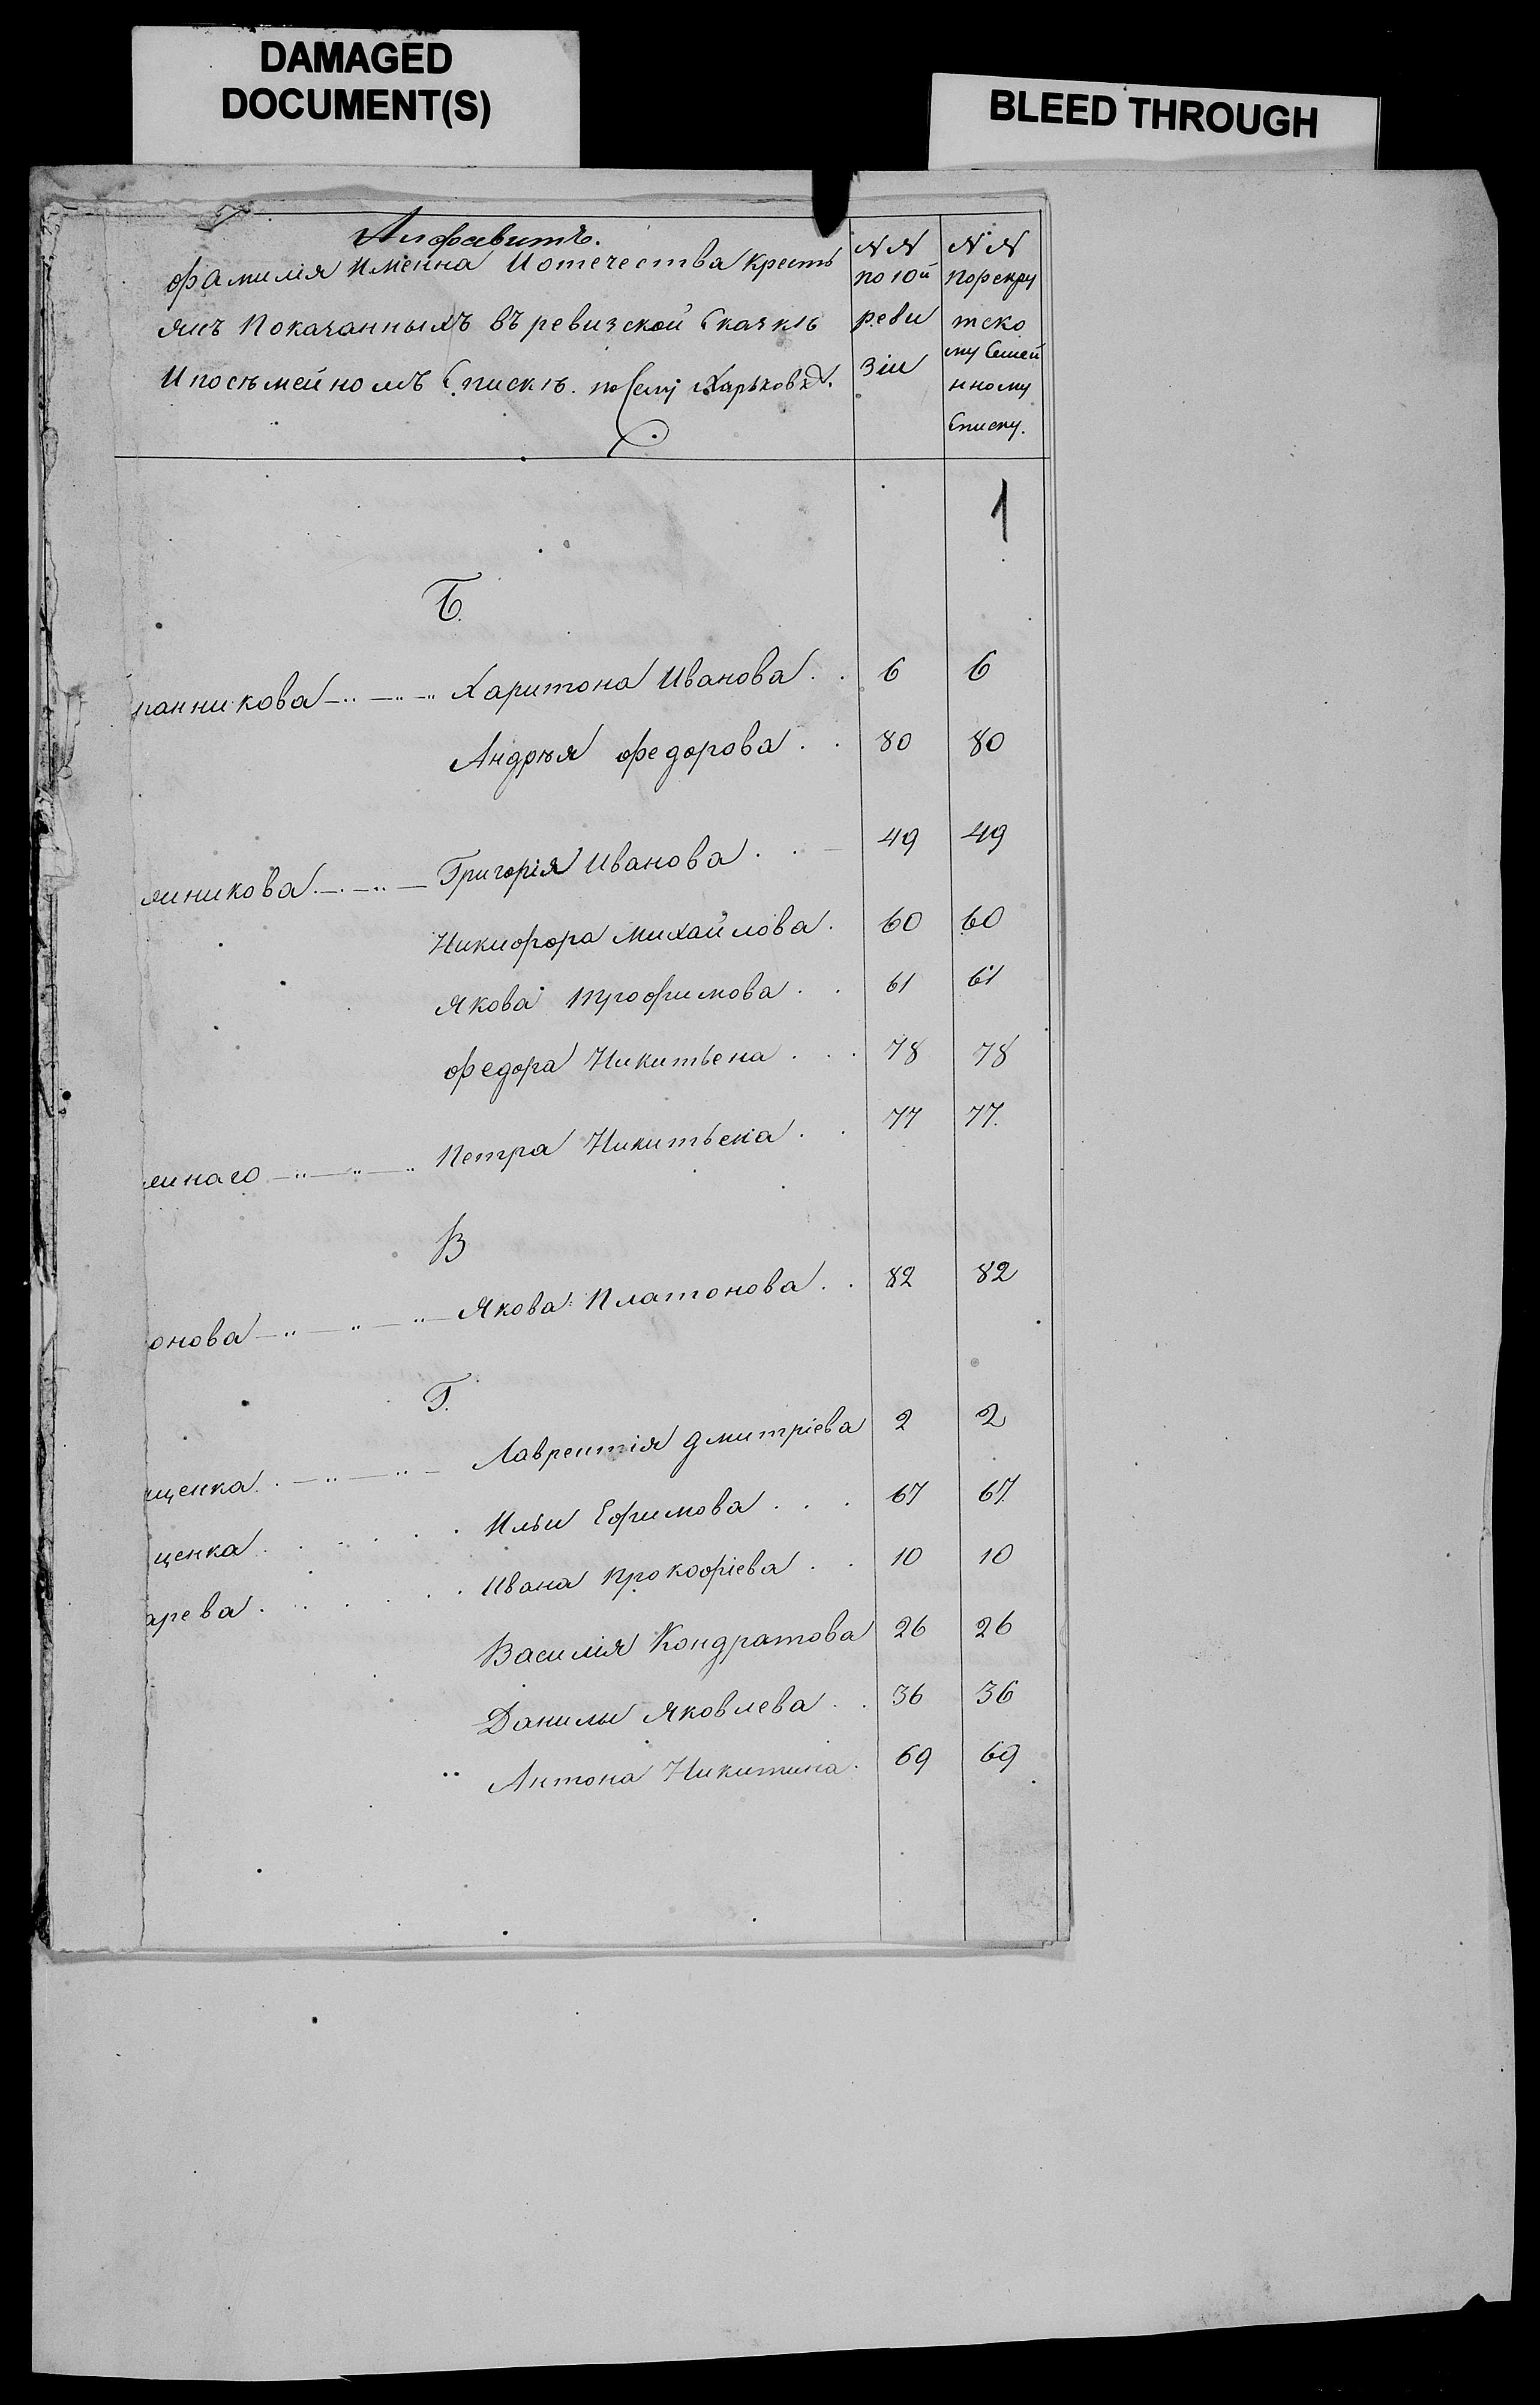 DAMAGED
DOCUMENT(S)
BLEED THROUGH
Алфавитъ.
Фамилія Именна Иотечества Кресть
янъ Показанныхъ въ ревизской Сказкѣ
Ипосѣмейномъ Спискѣ. по Селу
NN
по 10й
реви
зіи
NN
порекру
тско
му Семей
нному
Списку.
1
Б.
анникова Харитона Иванова 6 6
Андрѣя Федорова 80 80
линикова Григорія Иванова 49 49
Никифора Михайлова 60 60
Якова Трофимова 61 61
Федора Никитьена 78 78
Петра Никитьена 77 77.
инаго
В
онова Якова Платонова 82 82
Г.
щенка Лаврентія Дмитріева 2 2
щенка Ильи Ефимова 67 67
арева Ивана Прокофіева 10 10
Василія Кондратова 26 26
Данилы Яковлева 36 36
Антона Никитина 69 69